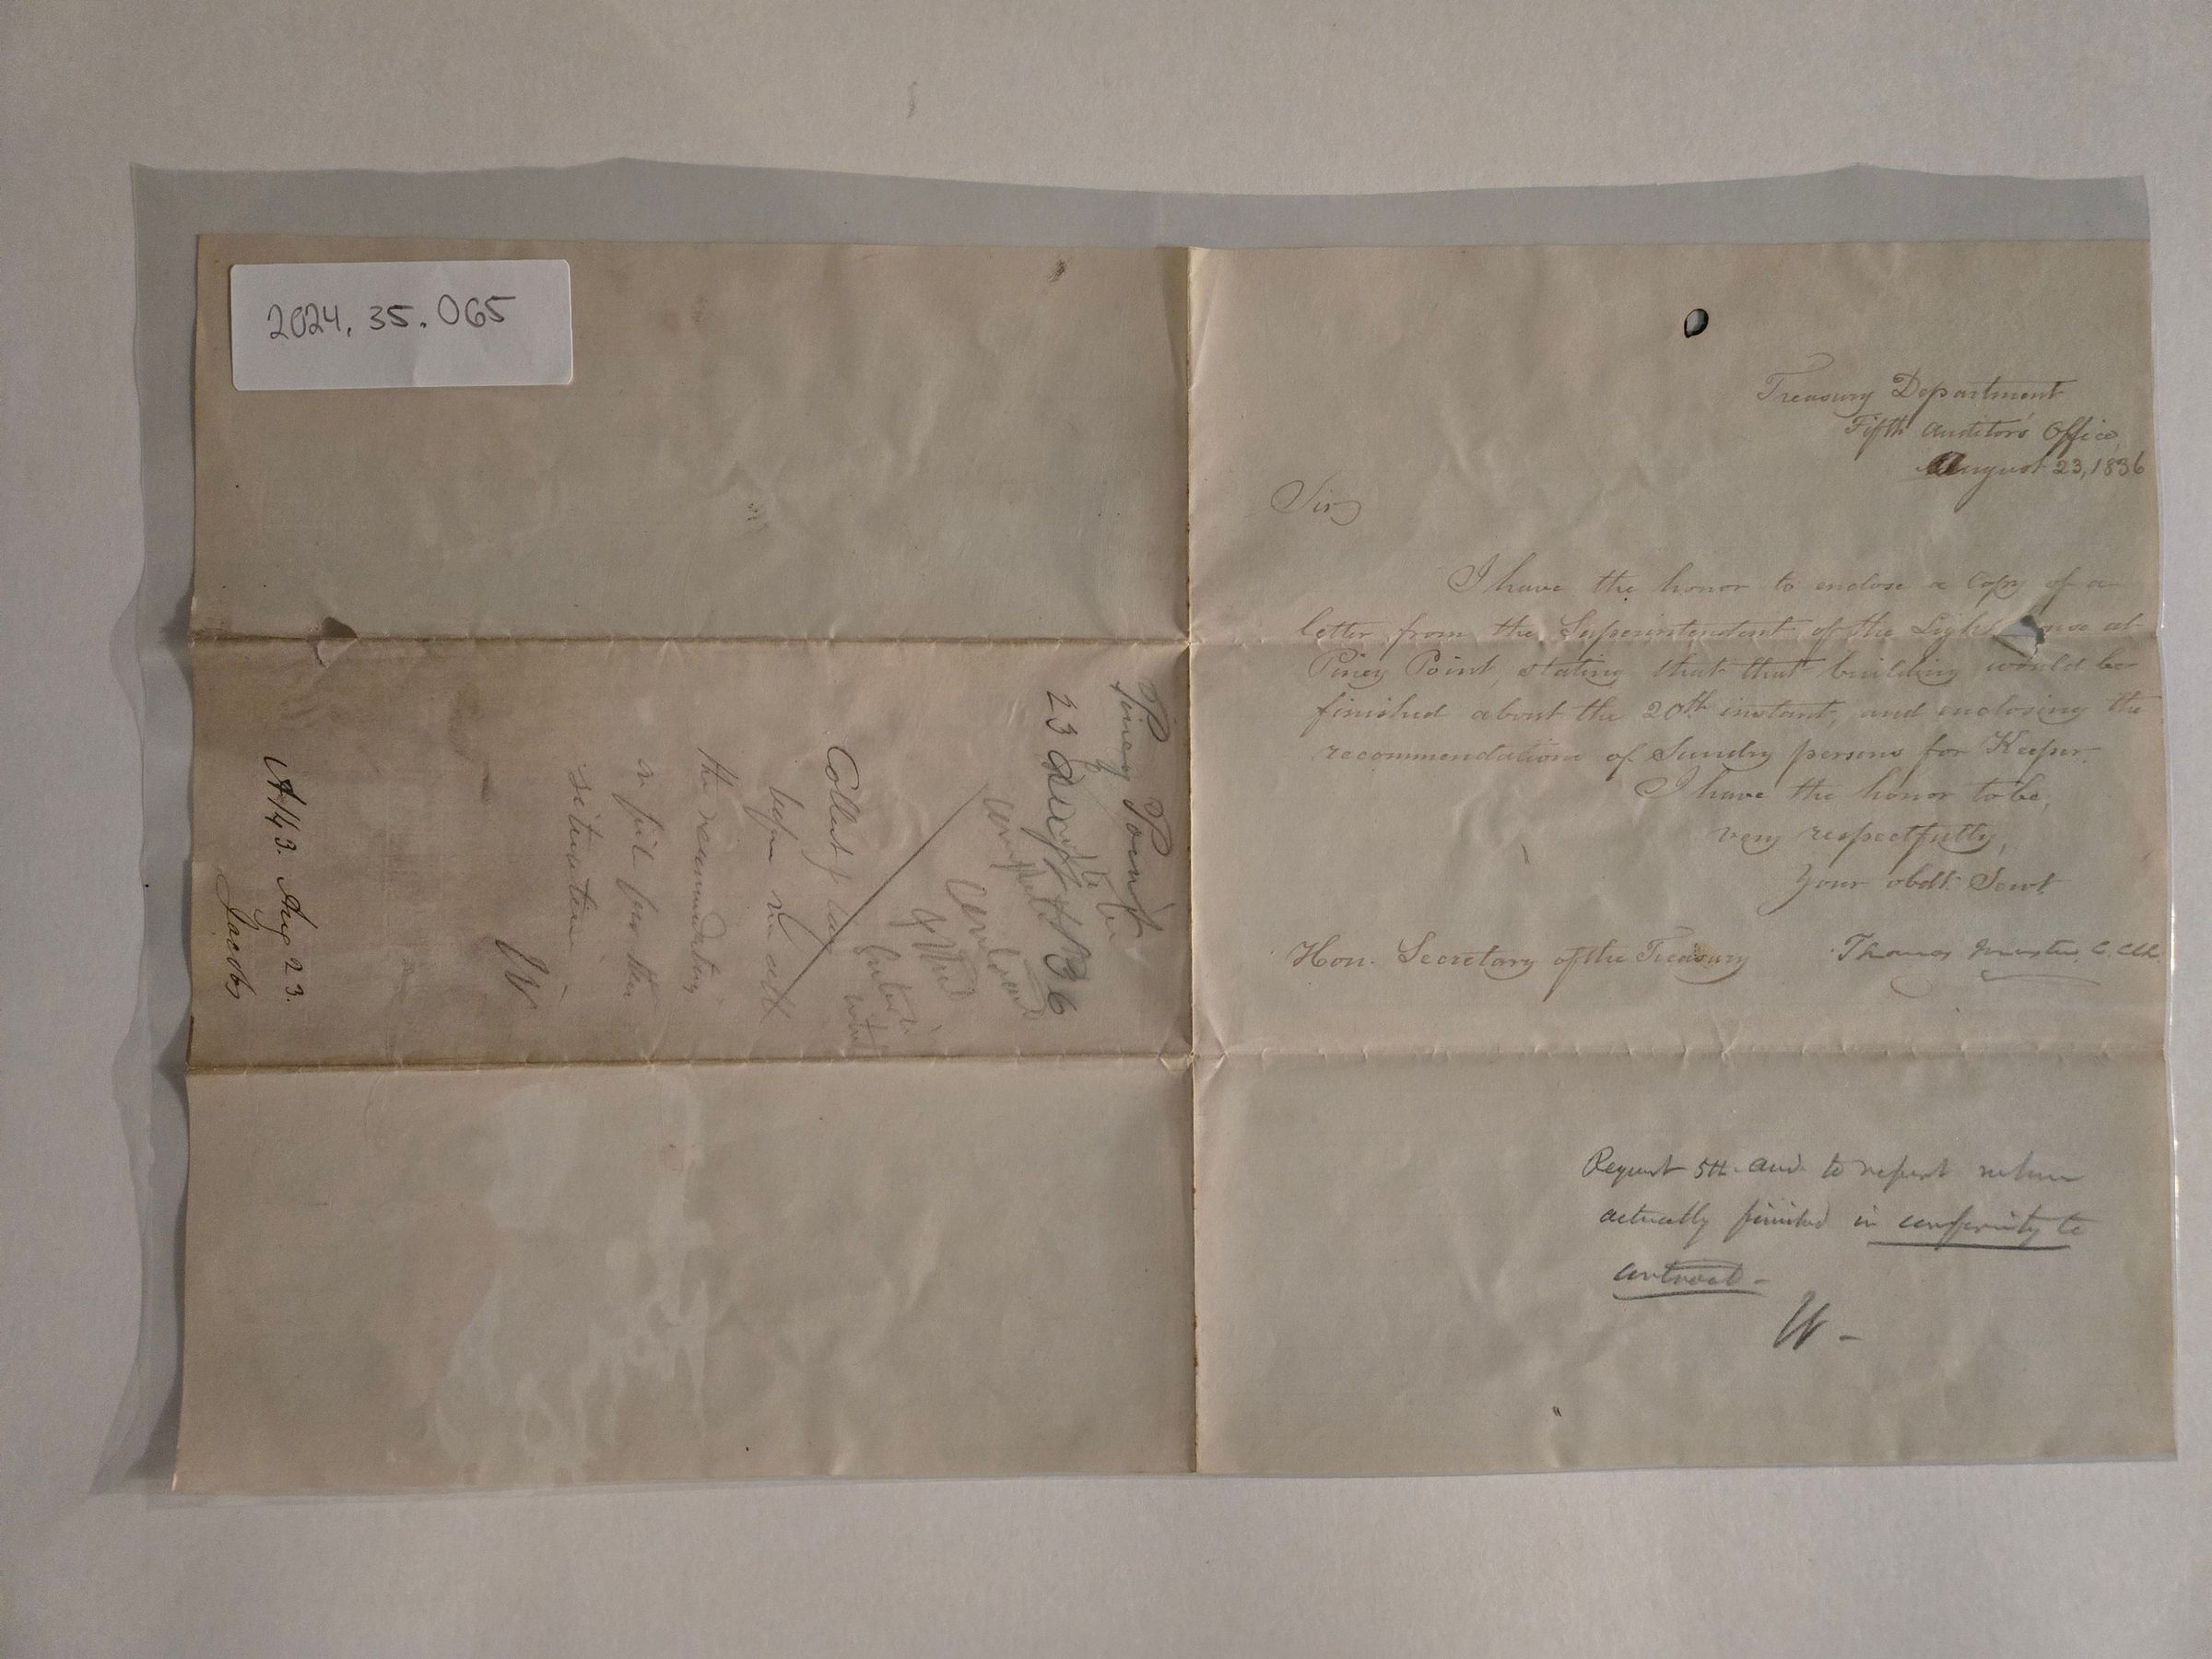 2024.35.065
Treasury Department
Fifth Auditor's Office
August 23, 1836
Sir
I have the honor to enclose a Copy of a
letter from the Superintendent of the Light ouse at
Piney Point, stating that that building would be
finished about the 20th instant, and enclosing the
recommendations of Sundry persons for Keeper.
I have the honor to be,
very respectfully,
Your obdt. Servt.
Hon. Secretary of the Treasury
Thomas
Request 5th Aud to report when
actually finished in conformity to
contract -
W -
Piney Point
23 August 1836
before me all
the recommendations
on file for the
situation
W
A 143. Aug 23.
Jacobs